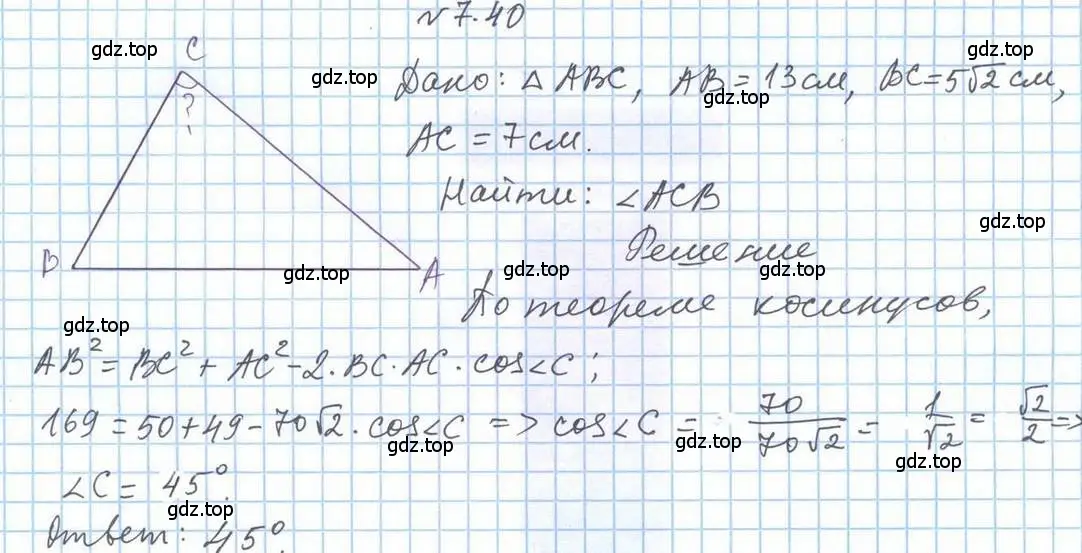 № 7.40
C
gdz.top
gdz.top
gdz.top
Дано: △ ABC, AB = 13 см, BC = 5√2 см,
gdz.top
?
AC = 7 см.
gdz.top
Найти: ∠ACB
gdz.top
Решение
B
gdz.top
A
gdz.top
gdz.top
По теореме косинусов,
gdz.top
AB² = BC² + AC² - 2·BC·AC·cos∠C;
169 = 50 + 49 - 70√2·cos∠C => cos∠C = 70/70√2 = 1/√2 = √2/2 =>
gdz.top
gdz.top
gdz.top
∠C = 45°.
gdz.top
Ответ: 45°.